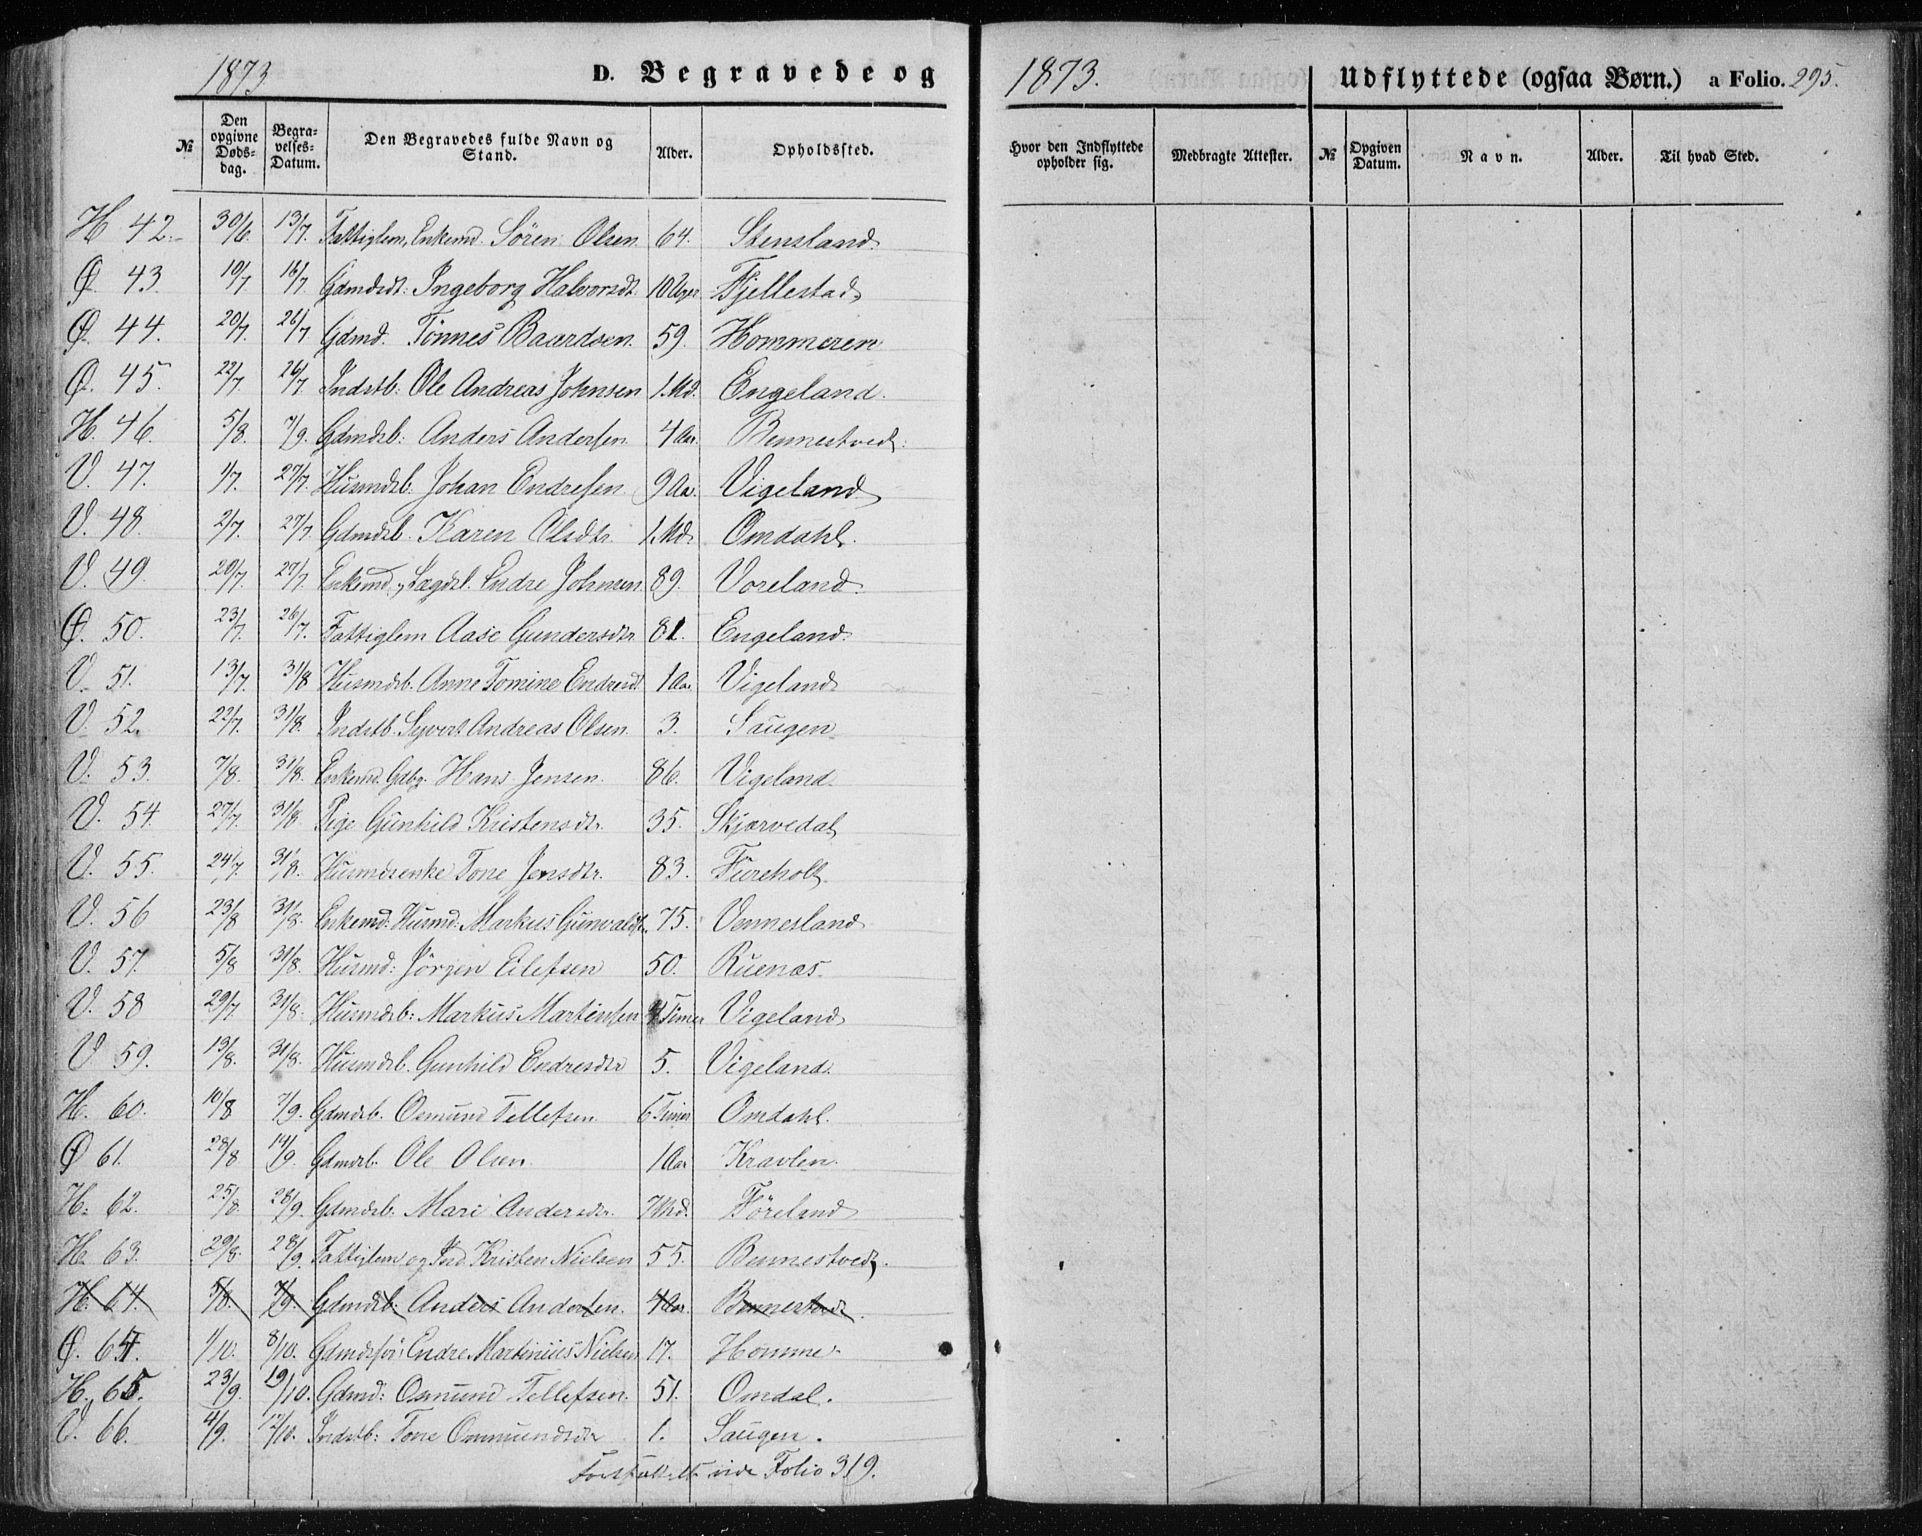 1873 D. Begravede og
№ Den opgivne Døds-dag. Begra-velses-Datum. Den Begravedes fulde Navn og Stand. Alder. Opholdsted.
H 42. 30/6 13/7. Fattiglem, Enkemd. Sören Olsen 64. Stensland.
Ø. 43. 10/7 16/7 Gdmdsdt: Ingeborg Halvorsdt. 10 Uger Fjellestad
Ø. 44. 20/7. 26/7 Gdmd. Tönnes Baardsen. 59. Hommeren
Ø. 45. 22/7 26/7 Indstb: Ole Andreas Johnsen 1. Md. Engeland.
H. 46. 5/8. 7/9. Gdmdsb: Anders Andersen. 4 Aar. Bennestvedt.
V. 47. 1/7. 27/7. Husmdsb. Johan Endresen 9 Aa. Vigeland
V. 48. 2/7. 27/7 Gdmdsb. Karen Olsdtr. 1. Md. Omdahl.
V. 49. 20/7. 27/7 Enkemd., Lægdsl. Endre Johnsen 89. Voreland.
Ø. 50. 23/7. 26/7. Fattiglem Aase Gundersdtr. 81. Engeland.
V. 51. 13/7. 31/8 Husmdsb. Anne Tomine Endresdt 1 Aar Vigeland
V. 52. 22/7. 31/8. Indstb. Syvert Andreas Olsen. 3. Saugen
V. 53. 7/8. 31/8. Enkemd. Gdbg. Hans Jensen. 86. Vigeland.
V. 54. 27/7. 31/8 Pige Gunhild Kristensdtr. 35. Skjærvedal
V. 55. 24/7. 31/8. Husmdsenke Tone Jensdtr. 83. Fureholt.
V. 56 23/8 31/8. Enkemd: Husmd: Markus Gunvalds. 75. Vennesland
V. 57. 5/8 31/8. Husmd: Jörgen Eilefsen 50. Ruenæs.
V. 58 29/7 31/8. Husmdsb: Markus Martinsen 4 Timer Vigeland
V 59. 13/8. 31/8. Husmdsb. Gunhild Endresdtr 5. Vigeland.
H. 60. 10/8 7/9. Gdmdsb. Osmund Tellefsen. 6 Timer Omdahl.
Ø 61. 28/8 14/9. Gdmdsb. Ole Olsen. 1 Aar Kravlen.
H. 62. 25/8. 28/9. Gdmdsb. Mari Andersdtr. 7 Md. Föreland
H. 63. 29/8. 28/9. Fattiglem og Ind. Kristen Nielsen 55. Bennestvedt.
H. 64. 5/8. 7/9. Gdmdsb. Anders Andersen. 4 Aar. Bennestvedt.
Ø. 64. 1/10. 8/10. Gdmdsför: Endre Martinius Nielsen 17. Homme
H. 65. 23/9. 19/10. Gdmd: Osmund Tellefsen. 51. Omdal.
V. 66. 4/9. 12/10. Indstb: Tone Ommundsdtr 1. Saugen.
Fortsættelse vide Folio 319.
1873. Udflyttede (ogsaa Børn.) a Folio. 295.
Hvor den Indflyttede opholder sig. Medbragte Attester. № Opgiven Datum. Navn. Alder. Til hvad Sted.